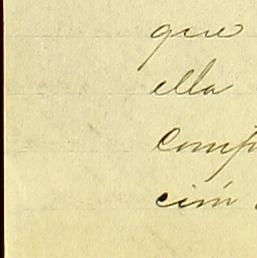 que
ella
comp
ción